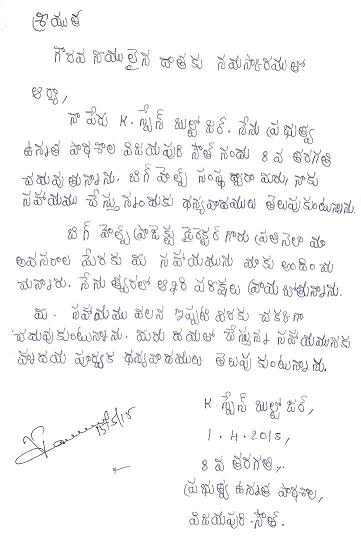 శ్రీయుత
గౌరవనీయులైన దాతకు నమస్కారములతో
ఆర్యా,
నా పేరు K. స్టీఫెన్ జర్. నేను ప్రభుత్వ
ఉన్నత పాఠశాల విజయపురి సౌత్ నందు 8 వ తరగతి
చదువుతున్నాను. బిగ్ హెల్ప్ సంస్థ ద్వారా మీరు, నాకు
సహాయము చేస్తున్నందుకు ధన్యవాదములు తెలుపుకుంటున్నాను.
బిగ్ హెల్ప్ ప్రాజెక్టు డైరెక్టర్ గారు ప్రతినెలా మా
అవసరాల మేరకు మీ సహాయమును మాకు అందించు
చున్నారు. నేను త్వరలో ఆఖరి పరీక్షలు వ్రాయబోతున్నాను.
మీ సహాయము వలన ఇప్పటి వరకు చక్కగా
చదువుకుంటున్నాను. మీరు దయతో చేస్తున్న సహాయమునకు
హృదయ పూర్వక ధన్యవాదములు తెలుపుకుంటున్నాను.
K స్టీఫెన్ జర్,
1.4.2015,
8 వ తరగతి,
ప్రభుత్వ ఉన్నత పాఠశాల,
విజయపురి సౌత్.